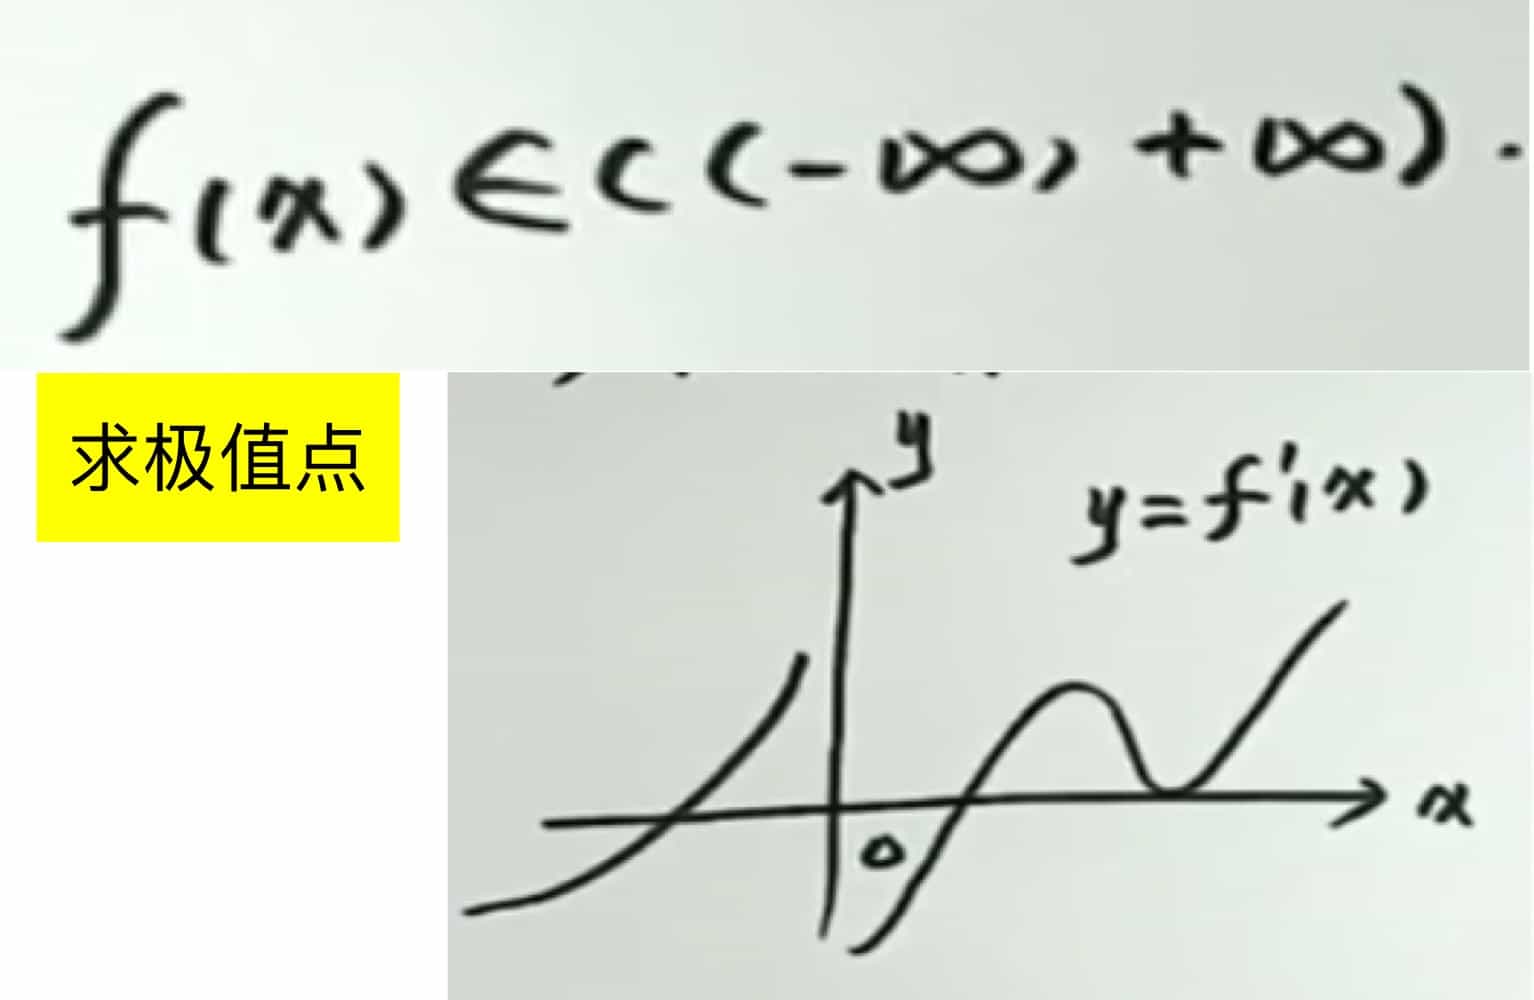 f(x)∈C(-∞, +∞).
求极值点
y
y=f'(x)
x
0